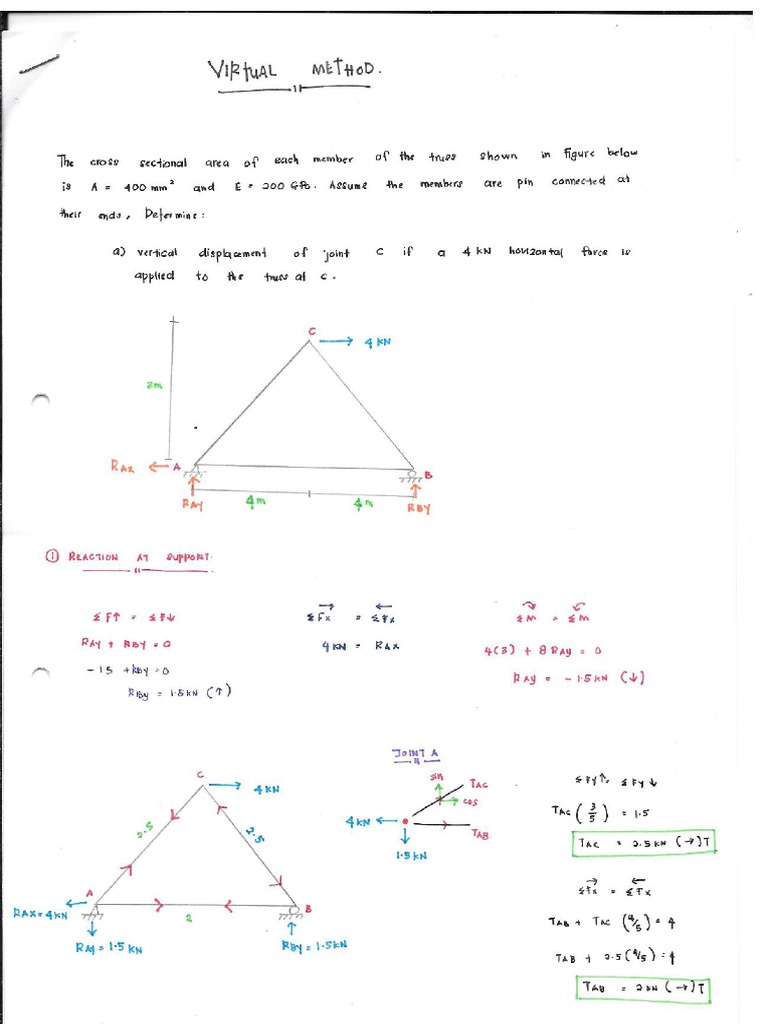 VIRTUAL METHOD.
The cross sectional area of each member of the truss shown in figure below
is A = 400 mm² and E = 200 GPa. Assume the members are pin connected at
their ends, Determine:
a) vertical displacement of joint C if a 4 kN horizontal force is
applied to the truss at C.
C
4 KN
3m
RAX
A
B
RAY
4m
4m
RBY
① REACTION AT SUPPORT.
Σ F↑ = Σ F↓
RAY + RBY = 0
- 1.5 + RBY = 0
RBY = 1.5 KN (↑)
ΣFx = ΣFx
4 KN = RAX
ΣM = ΣM
4(3) + 8 RAY = 0
RAY = -1.5 KN (↓)
C
4KN
2.5
2.5
A
RAX = 4 KN
2
B
RAY = 1.5 KN
RBY = 1.5KN
JOINT A
sin
TAC
cos
4KN
TAB
1.5 KN
ΣFy↑ = ΣFy↓
TAC (3/5) = 1.5
TAC = 2.5 KN (→) T
ΣFx = ΣFx
TAB + TAC (4/5) = 4
TAB + 2.5 (4/5) = 4
TAB = 2 KN (→) T